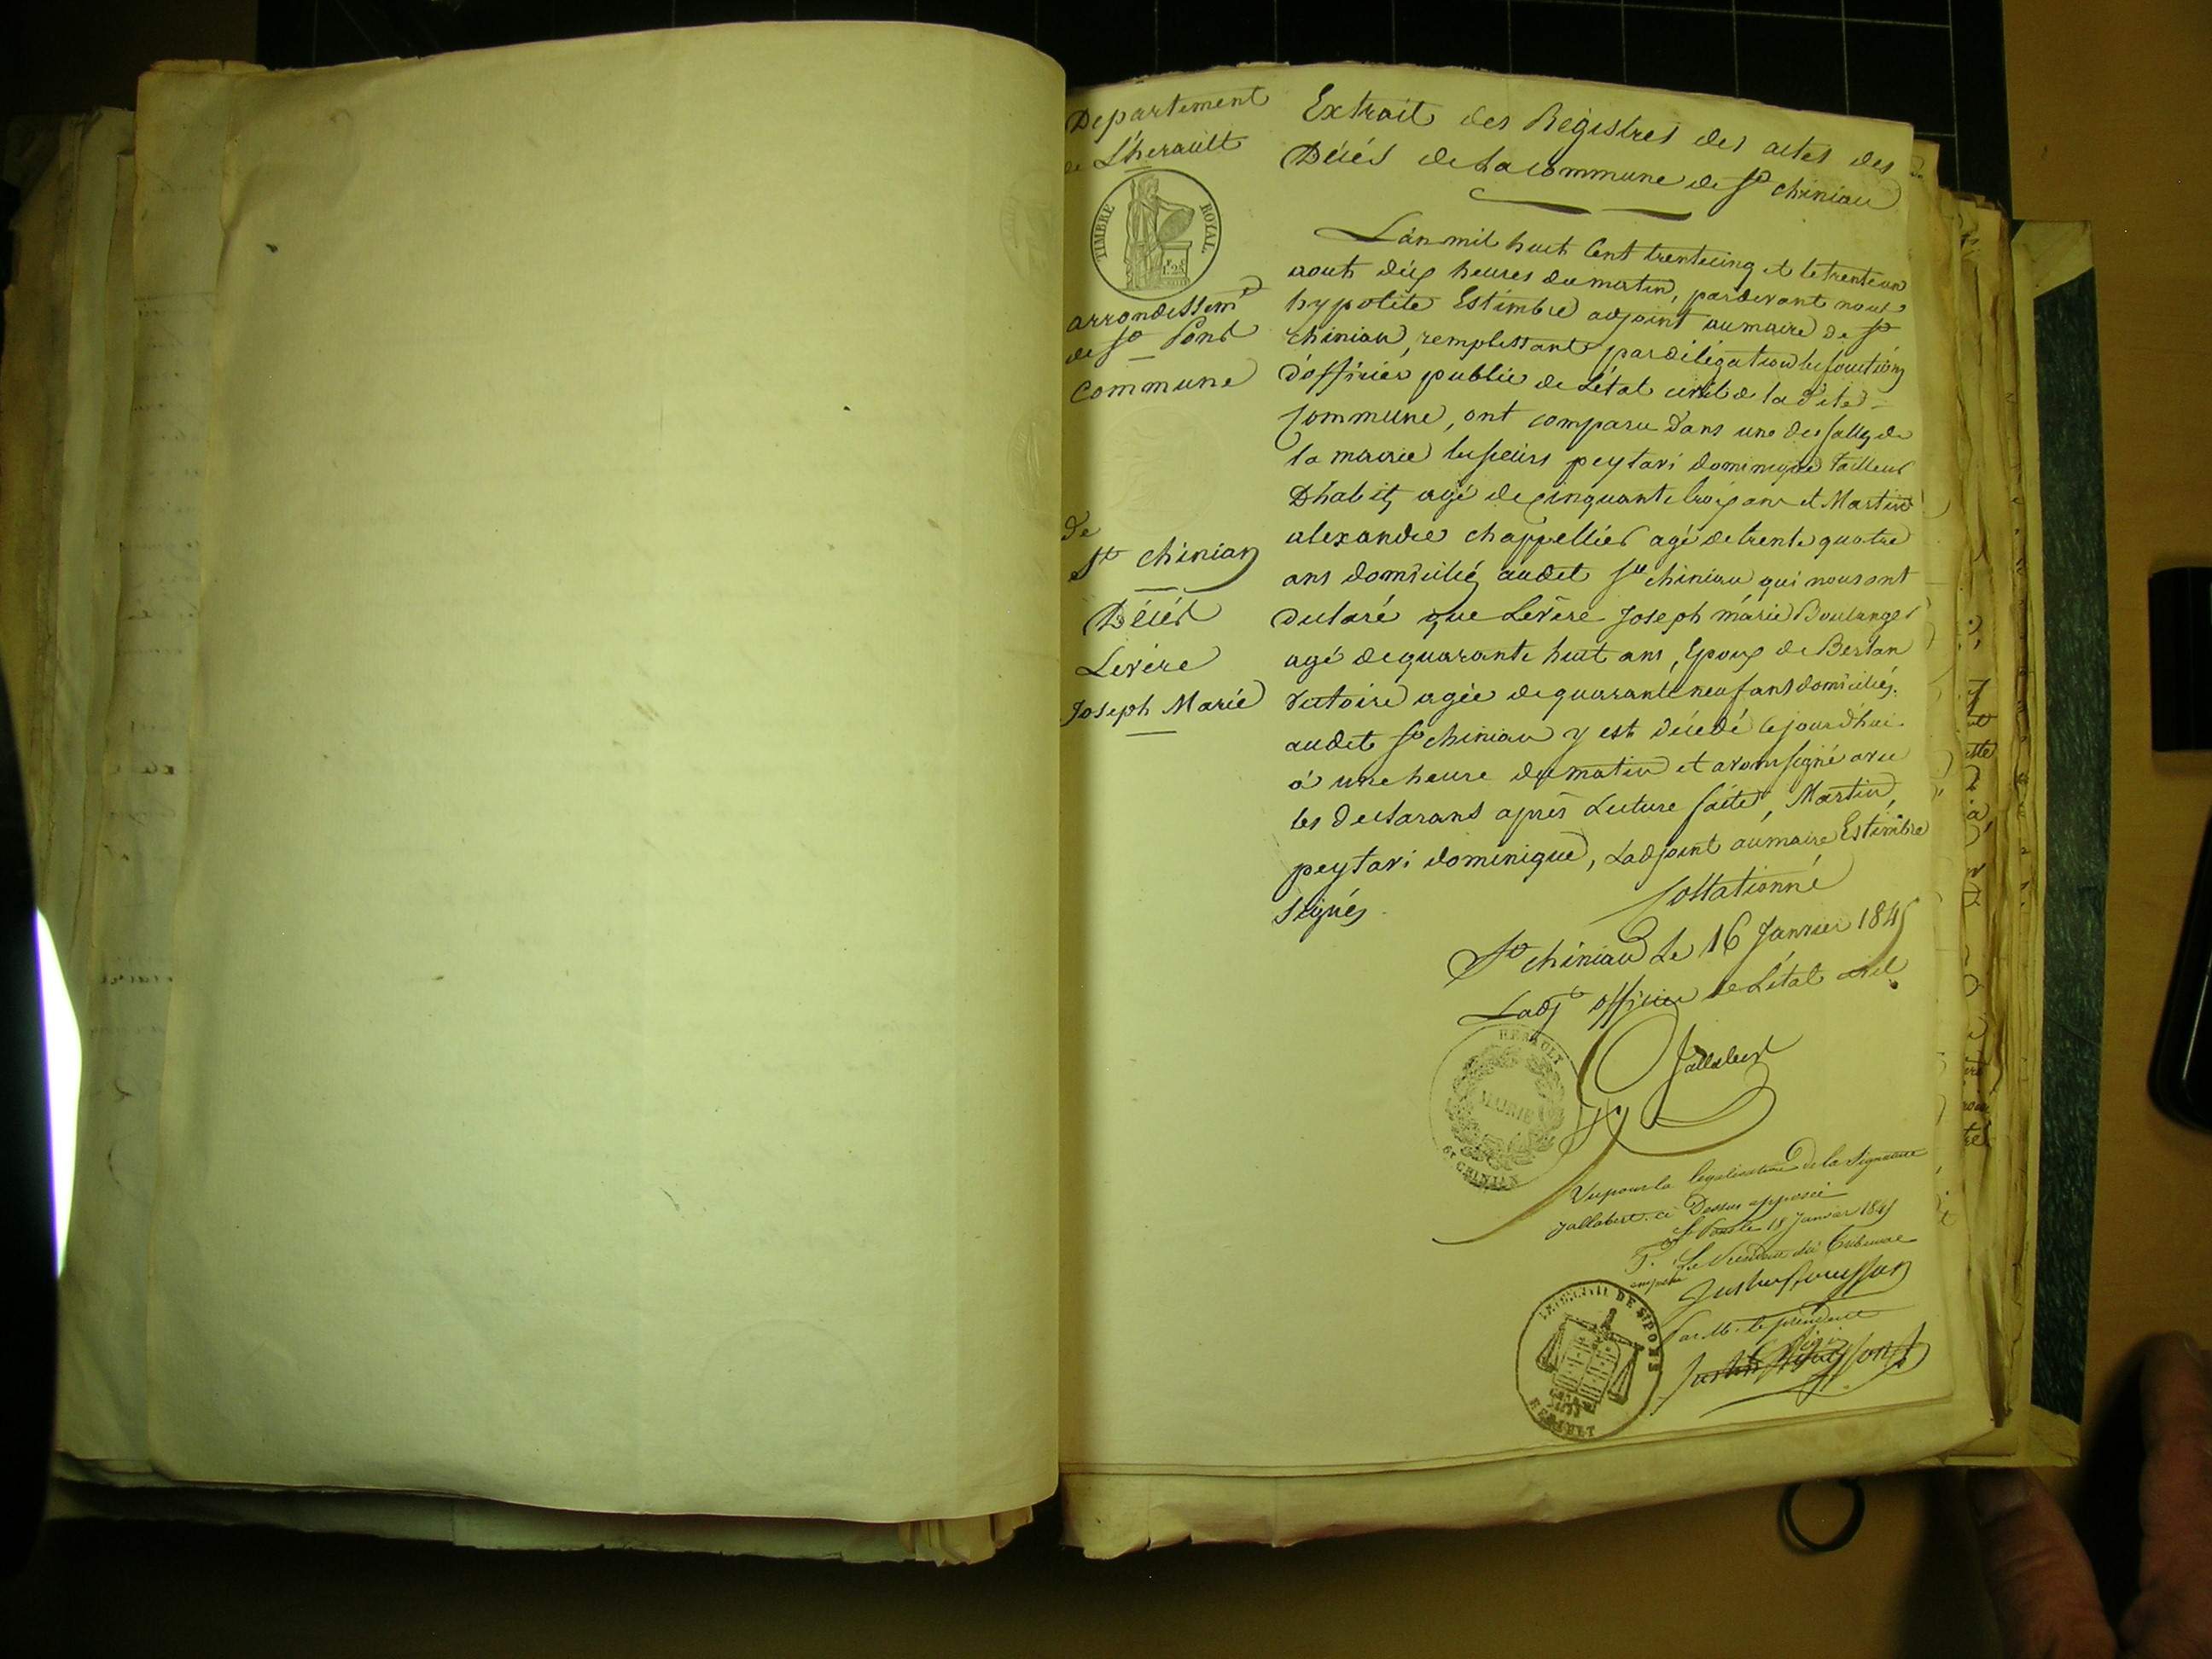 Departement
de L'herault
TIMBRE ROYAL
1.25
arrondissemt
de St Pons
Commune
de
St chinian
Décés
Levère
Joseph Marie
Extrait des Registres des actes des
Décés de la commune de St chinian
L'an mil huit Cent trente cinq et le trente un
aout dix heures du matin, pardevant nous
hypolite Estimbre adjoint au maire de St
chinian, remplissant par délégation les fonctions
d'officier public de L'état civil de la dite
Commune, ont comparu dans une des salles de
la mairie les sieurs peytavi dominique tailleur
D'habits, agé de cinquante trois ans et Martin
alexandre chappellier agé de trente quatre
ans domiciliés audit St chinian qui nous ont
déclaré que Levère Joseph marie Boulanger
agé de quarante huit ans, Epoux de Bertan
victoire agée de quarante neuf ans domiciliés
audit St chinian y est décédé cejourd'hui
à une heure du matin et avons signé avec
les declarans après Lecture faite, Martin,
peytavi dominique, Ladjoint au maire Estimbre
Signés
Collationné
St chinian Le 16 Janvier 1845
Ladjt officier de L'état civil
Jallabert
HERAULT
MAIRIE
ST CHINIAN
Vu pour la légalisation de la Signature
Jallabert ci Dessus apposée
St Pons le 18 Janvier 1845
P. Le Président du Tribunal
empeché
Par M. le président
TRIBUNAL DE ST PONS
HERAULT